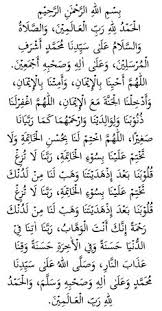 بِسْمِ اللهِ الرَّحْمٰنِ الرَّحِيْمِ
الْحَمْدُ لِلّٰهِ رَبِّ الْعَالَمِيْنَ، وَالصَّلَاةُ
وَالسَّلَامُ عَلَى سَيِّدِنَا مُحَمَّدٍ أَشْرَفِ
الْمُرْسَلِيْنَ، وَعَلَى آلِهِ وَصَحْبِهِ أَجْمَعِيْنَ.
اللّٰهُمَّ أَحْيِنَا بِالْإِيْمَانِ، وَأَمِتْنَا بِالْإِيْمَانِ،
وَأَدْخِلْنَا الْجَنَّةَ مَعَ الْإِيْمَانِ، اللّٰهُمَّ اغْفِرْلَنَا
ذُنُوْبَنَا وَلِوَالِدِيْنَا وَارْحَمْهُمَا كَمَا رَبَّيَانَا
صِغَارًا، اللّٰهُمَّ اخْتِمْ لَنَا بِحُسْنِ الْخَاتِمَةِ وَلَا
تَخْتِمْ عَلَيْنَا بِسُوْءِ الْخَاتِمَةِ، رَبَّنَا لَا تُزِغْ
قُلُوْبَنَا بَعْدَ إِذْهَدَيْتَنَا وَهَبْ لَنَا مِنْ لَدُنْكَ
تَخْتِمْ عَلَيْنَا بِسُوْءِ الْخَاتِمَةِ، رَبَّنَا لَا تُزِغْ
قُلُوْبَنَا بَعْدَ إِذْهَدَيْتَنَا وَهَبْ لَنَا مِنْ لَدُنْكَ
رَحْمَةً إِنَّكَ أَنْتَ الْوَهَّابُ، رَبَّنَا آتِنَا فِي
الدُّنْيَا حَسَنَةً وَفِي الْآخِرَةِ حَسَنَةً وَقِنَا
عَذَابَ النَّارِ، وَصَلَّى اللهُ عَلَى سَيِّدِنَا
مُحَمَّدٍ وَعَلَى آلِهِ وَصَحْبِهِ وَسَلَّمَ، وَالْحَمْدُ
لِلّٰهِ رَبِّ الْعَالَمِيْنَ.